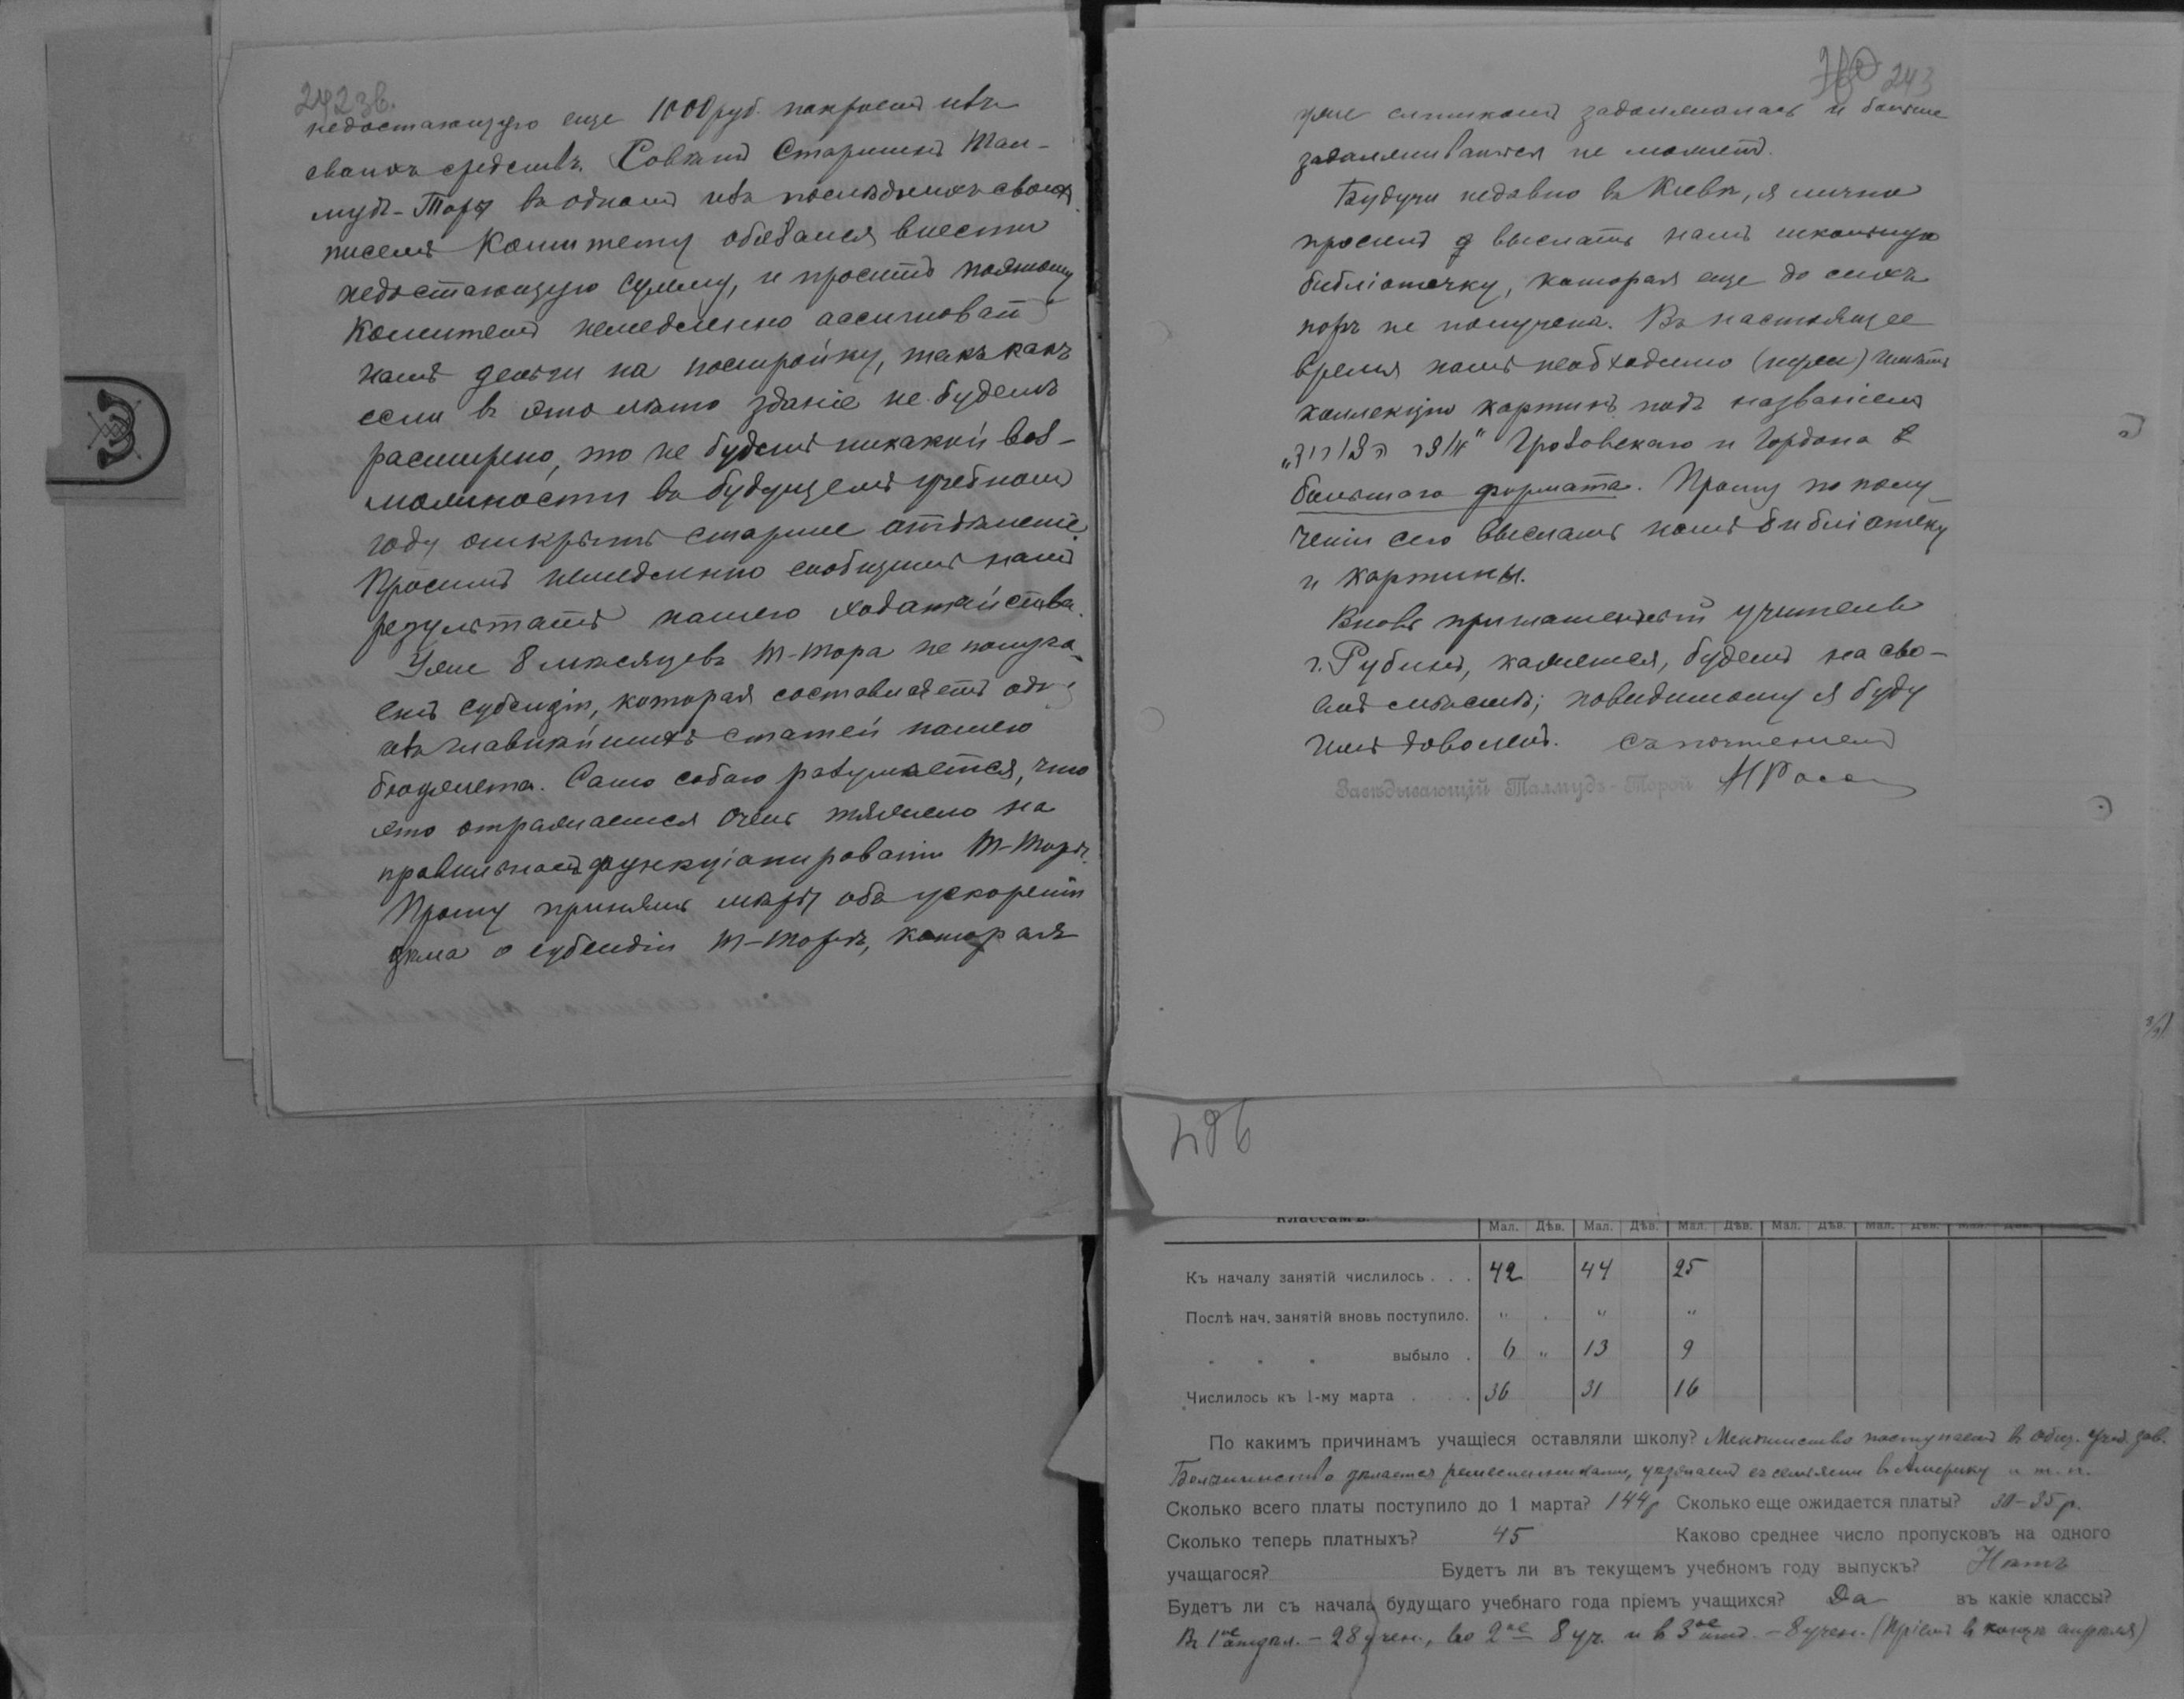 242 зв.
недостающую еще 1000 руб. покроетъ изъ
своихъ средствъ. Совѣтъ Старшинъ Тал-
мудъ-Торы въ одномъ изъ послѣднихъ своихъ
писемъ Комитету обязался внести
недостающую сумму, и проситъ поэтому
Комитетъ немедленно ассигновать
намъ деньги на постройку, такъ какъ
если въ это лѣто зданіе не будетъ
расширено, то не будетъ никакой воз-
можности въ будущемъ учебномъ
году открыть старшее отдѣленіе.
Просимъ немедленно сообщить намъ
результатъ нашего ходатайства.
Уже 8 мѣсяцевъ Т-Тора не получа-
етъ субсидіи, которая составляетъ одну
изъ главнѣйшихъ статей нашего
бюджета. Само собою разумѣется, что
это отражается очень тяжело на
правильномъ функціонированіи Т-Торы.
Прошу принять мѣры объ ускореніи
дѣла о субсидіи Т-Торѣ, которая
243
уже слишкомъ задолжалась и больше
задалживаться не можетъ.
Будучи недавно въ Кіевѣ, я лично
просилъ выслать намъ школьную
библіотечку, которая еще до сихъ
поръ не получена. Въ настоящее
время намъ необходимо имѣть
коллекцію картинъ подъ названіемъ
Гразовскаго и Гордона
большого формата. Прошу по полу-
ченіи сего выслать намъ библіотеку
и картины.
Вновь приглашенный учитель
г. Рубинъ, кажется, будетъ на сво-
емъ мѣстѣ; повидимому я буду
имъ доволенъ. Съ почтеніемъ
Завѣдывающій Талмудъ-Торой
286
классамъ.
Мал. Дѣв. Мал. Дѣв. Мал. Дѣв. Мал. Дѣв. Мал. Дѣв. Мал. Дѣв.
Къ началу занятій числилось . . . 42 44 25
Послѣ нач. занятій вновь поступило. " " "
" " " выбыло . 6 " 13 9
Числилось къ 1-му марта . . . . 36 31 16
По какимъ причинамъ учащіеся оставляли школу? Меньшинство поступаетъ въ общ. учеб. зав.
Большинство дѣлается ремесленниками, уѣзжаетъ съ семьями въ Америку и т. п.
Сколько всего платы поступило до 1 марта? 144 р Сколько еще ожидается платы? 30-35 р.
Сколько теперь платныхъ? 45 Каково среднее число пропусковъ на одного
учащагося? Будетъ ли въ текущемъ учебномъ году выпускъ? Нѣтъ
Будетъ ли съ начала будущаго учебнаго года пріемъ учащихся? Да въ какіе классы?
Въ 1ое отдѣл. - 28 учен., во 2ое 8 уч. и въ 3ое отд. - 8 учен. (Пріемъ въ концѣ апрѣля)